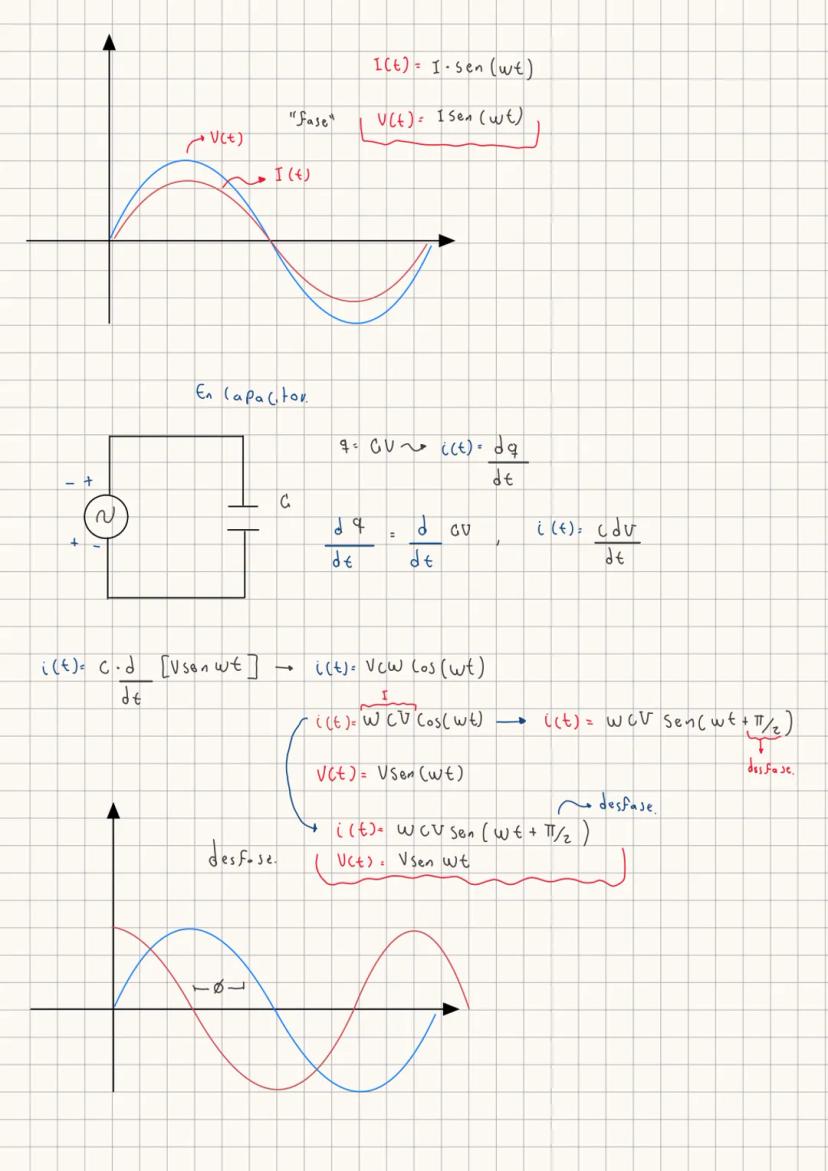 I(t) = I · sen (wt)
"fase" V(t) = I sen (wt)
V(t)
I(t)
En Capacitor.
q = CV ⤳ i(t) = dq/dt
- +
C
+ -
dq/dt = d/dt CV , i(t) = C dV/dt
i(t) = C · d/dt [V sen wt] → i(t) = VCW Cos (wt)
I
i(t) = WCV Cos (wt) → i(t) = WCV Sen (wt + π/2)
desfase.
V(t) = V sen (wt)
desfase.
i(t) = WCV sen (wt + π/2)
desfase. V(t) = V sen wt
ø